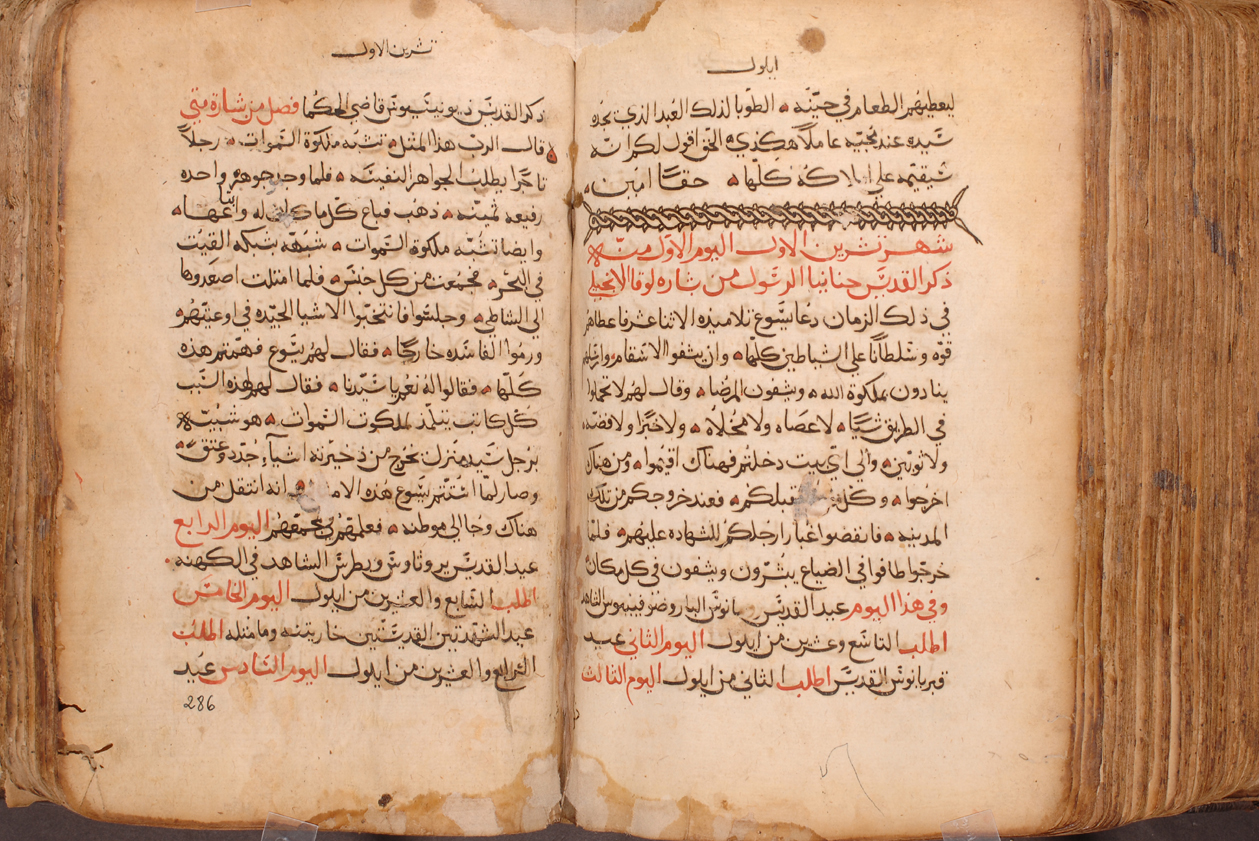 ايلول
ليعطيهم الطعام في حينه الطوبا لذلك العبد الذي يجده
سيده عند مجيه عاملاً هكذي الحق اقول لكم انه
سيقيمه علي املاكه كلها حقاً امين
شهر تشرين الاول اليوم الاول منه
ذكر القديس حنانيا الرسول من بشاره لوقا الانجيلي
في ذلك الزمان دعا يسوع تلاميذه الاثنا عشر فاعطاهم
قوه وسلطاناً على الشياطين كلها وان يشفوا الاسقام وارسلهم
ينادون بملكوة الله ويشفون المرضا وقال لهم لا تحملوا
في الطريق شياً لا عصاه ولا مخلاه ولا خبزا ولا فضه
ولا ثوبين والى اي بيت دخلتم فهناك اقيموا ومن هناك
اخرجوا وكل يقبلكم فعند خروجكم من تلك
المدينه فانفضوا غبار ارجلكم للشهاده عليهم فلما
خرجوا طافوا في الضياع يبشرون ويشفون في كل مكان
وفي هذا اليوم عيد القديس رمانوس البار
اطلب التاسع وعشرين من ايلول اليوم الثاني عيد
قبريانوس القديس اطلب الثاني من ايلول اليوم الثالث
تشرين الاول
ذكر القديس ديونيسيوس قاضي الحكما فصل من بشارة متى
قال الرب هذا المثل تشبه ملكوة السموات رجلاً
تاجرا يطلب الجواهر النفيسه فلما وجد جوهره واحده
رفيعه ثمينه ذهب فباع كل ما كان له واشتاعها
وايضا تشبه ملكوة السموات شبهه بشبكه القيت
في البحر فجمعت من كل جنس فلما امتلت اصعدوها
الى الشاطي وجلسوا فانتخبوا الاشيا الجيده في اوعيتهم
ورموا الفاسده خارجا فقال لهم يسوع فهمتم هذه
كلها فقالوا له نعم يا سيدنا فقال لهم لهذه السبب
كل كاتب يتلمذ بملكوت السموات هو شبيه
برجل سيد منزل يخرج من ذخيرته اشياء جدد وعتق
وصار لما استتم يسوع هذه الامثال انه انتقل من
هناك وجا الى موطنه فعلمهم في مجمعهم اليوم الرابع
عيد القديس يروثاوس وبطرس الشاهد في الكهنه
اطلب السابع والعشرين من ايلول اليوم الخامس
عيد الشهدتين القديستين خاريتنه ومامثله اطلب
الرابع والعشرين من ايلول اليوم السادس عيد
286